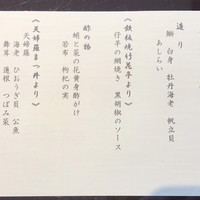 造り
鰤 白身 牡丹海老 帆立貝
あしらい
《鉄板焼竹花亭より》
仔羊の網焼き 黒胡椒のソース
酢の物
蛸と菜の花黄身酢がけ
若布 枸杞の実
《天婦羅まつ井より》
天婦羅
海老 ひおうぎ貝 公魚
舞茸 蓮根 つぼみ菜